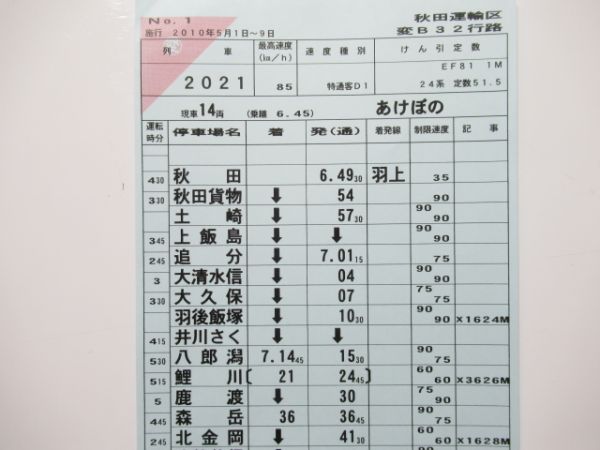 No. 1 秋田運輸区
施行 2010年5月1日～9日 変B32行路
列 車 最高速度(km/h) 速度種別 けん引定数
2021 85 特通客D1 EF81 1M
24系 定数51.5
現車14両 (乗継 6.45) あけぼの
運転時分 停車場名 着 発(通) 着発線 制限速度 記事
430 秋田 6.49 30 羽上 35
330 秋田貨物 ↓ 54 90
土崎 ↓ 57 30 90 90
345 上飯島 ↓ ↓
245 追分 ↓ 7.01 15 75
3 大清水信 ↓ 04 90 90
330 大久保 ↓ 07 75 75
羽後飯塚 ↓ 10 30 90 90 X1624M
415 井川さく ↓ ↓
530 八郎潟 7.14 45 15 30 90 75
515 鯉川 〔 21 24 45 〕 60 60 X3626M
5 鹿渡 ↓ 30 75 90
445 森岳 36 36 45 90 75
245 北金岡 ↓ 41 30 60 60 X1628M